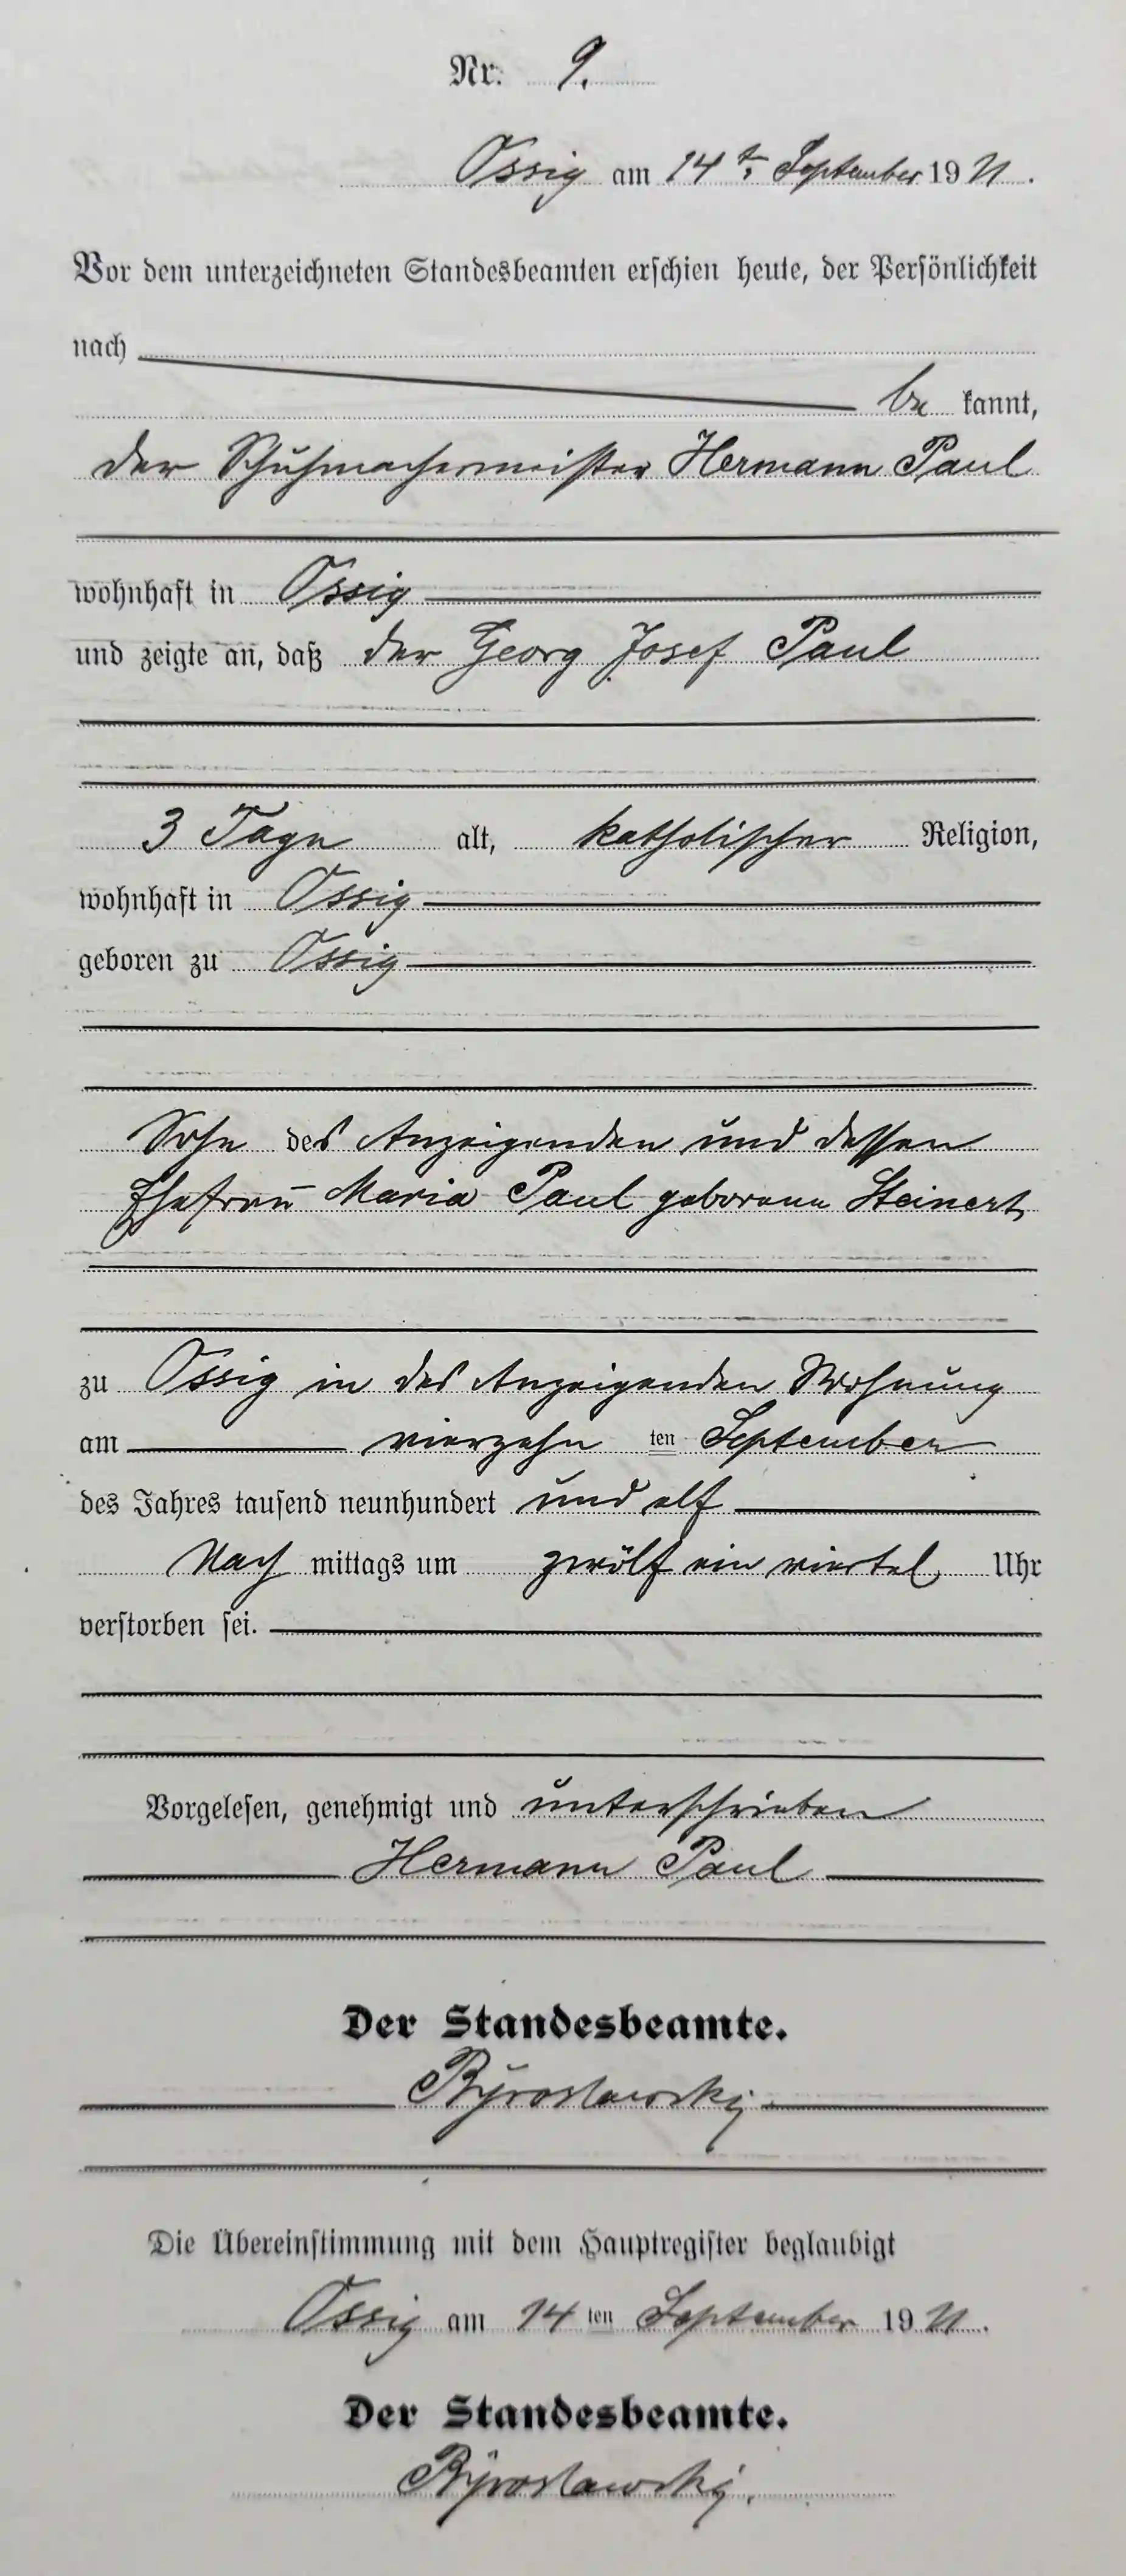 Nr. 9.
Ossig am 14ten September 1911.
Vor dem unterzeichneten Standesbeamten erschien heute, der Persönlichkeit
nach
be kannt,
der Schuhmachermeister Hermann Paul
wohnhaft in Ossig
und zeigte an, daß der Georg Josef Paul
3 Tage alt, katholischer Religion,
wohnhaft in Ossig
geboren zu Ossig
Sohn des Anzeigenden und dessen
Ehefrau Maria Paul geborene Steinert
zu Ossig in des Anzeigenden Wohnung
am vierzehn ten September
des Jahres tausend neunhundert und elf
Nach mittags um zwölf ein viertel Uhr
verstorben sei.
Vorgelesen, genehmigt und unterschrieben
Hermann Paul
Der Standesbeamte.
Die Übereinstimmung mit dem Hauptregister beglaubigt
Ossig am 14 ten September 1911.
Der Standesbeamte.